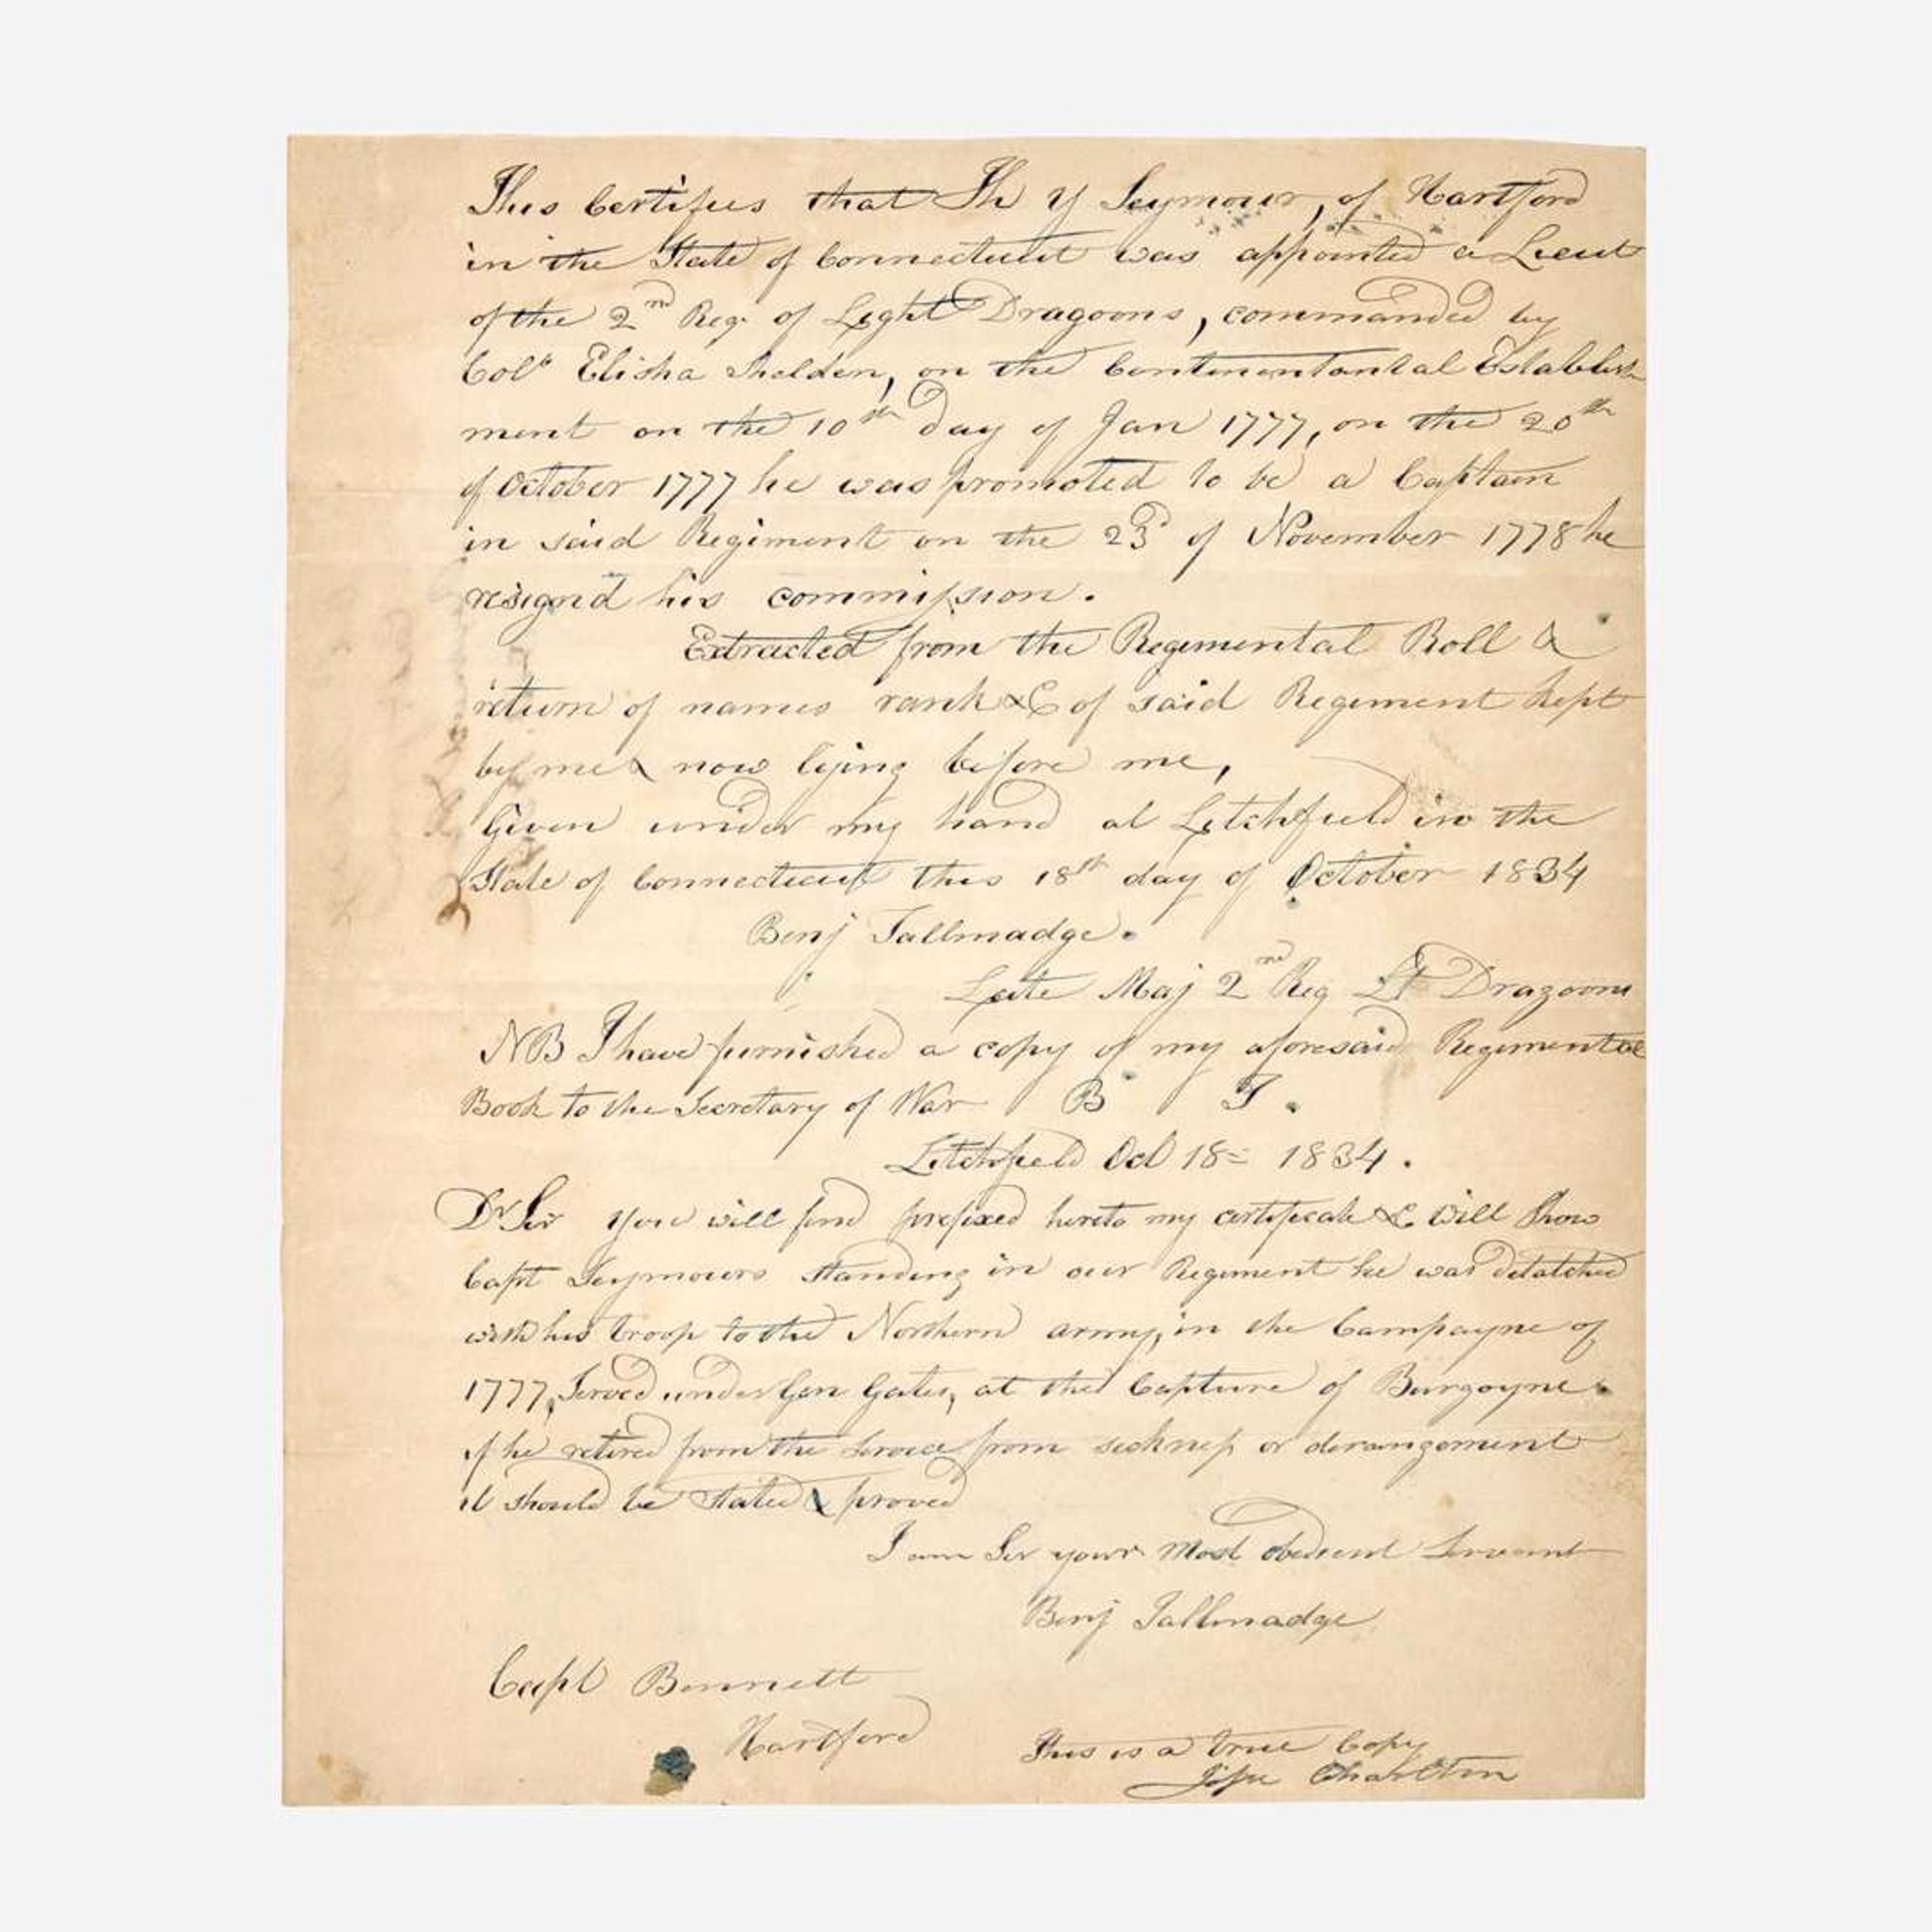 This Certifies that Th Y Seymour, of Hartford
in the State of Connecticut was appointed a Lieut
of the 2nd Reg. of Light Dragoons, commanded by
Colo Elisha Shelden, on the Contintentantal Establish
ment on the 10th day of Jan 1777, on the 20th
of October 1777 he was promoted to be a Captain
in said Regiment on the 23d of November 1778 he
resignd his commission.
Extracted from the Regimental Roll &
return of names rank &C of said Regiment kept
by me & now lying before me,
Given under my hand at Litchfield in the
State of Connecticut this 18th day of October 1834
Benj Tallmadge.
Late Maj 2nd Reg Lt Dragoons
NB I have furnished a copy of my aforesaid Regimental
Book to the Secretary of War B T.
Litchfield Oct 18= 1834.
Dr Sir you will find prefixed hereto my certificate &c Will Show
Capt Seymours standing in our Regiment he was detatched
with his troop to the Northern army, in the Campayne of
1777, Served under Gen Gates, at the Capture of Burgoyne.
if he retired from the service from sickness or derangement
it should be stated & proved
I am Sir your Most obedient Servant
Benj Tallmadge
Capt Bennett
Hartford
This is a true Copy
Charlton